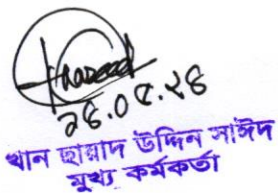 ২৪.০৫.২৪
খান ছালাদ উদ্দিন সাঈদ
মুখ্য কর্মকর্তা